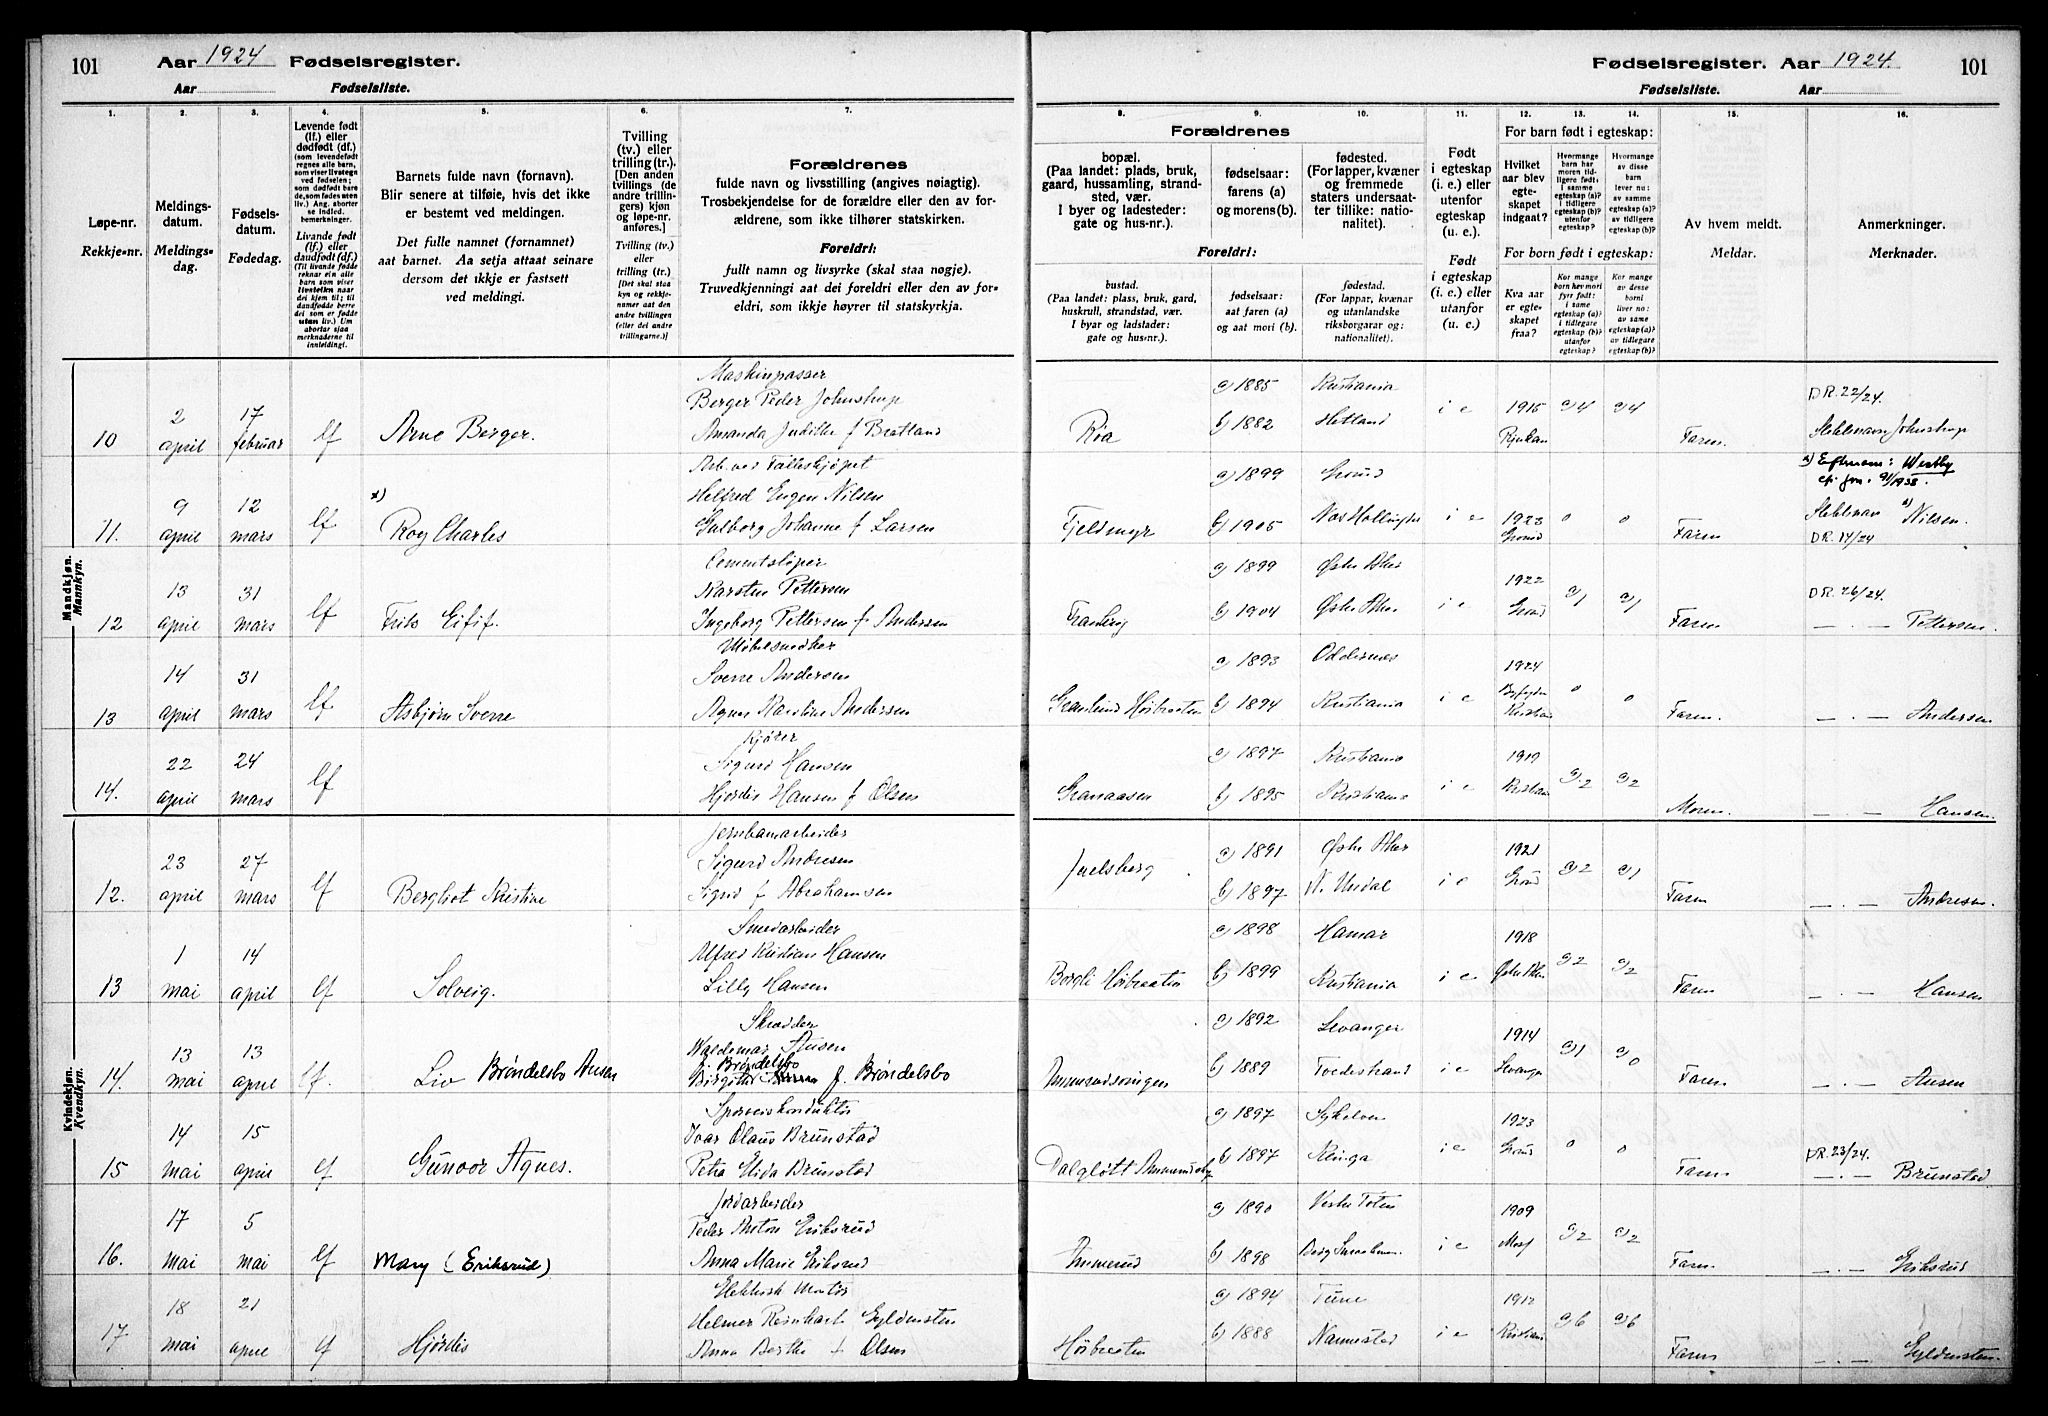 101 Aar 1924 Fødselsregister.
Aar Fødselsliste.
Fødselsregister. Aar 1924. 101
Fødselsliste. Aar
1. 2. 3. 4. 5. 6. 7.
Løpe-nr.
Rekkje-nr.
Meldings-
datum.
Meldings-
dag.
Fødsels-
datum.
Fødedag.
Levende født
(lf.) eller
dødfødt (df.)
(som levendefødt
regnes alle barn,
som viser livstegn
ved fødselen;
som dødfødt bare
de, som fødes uten
liv.) Ang. aborter
se indled.
bemerkninger.
Livande født
(lf.) eller
daudfødt (df.)
(Til livande fødde
reknar ein alle
barn som viser
livsteikn naar
dei kjem til; til
daudfødde berre
dei som er fødde
utan liv.) Um
abortar sjaa
merknaderne til
innleiding!
Barnets fulde navn (fornavn).
Blir senere at tilføie, hvis det ikke
er bestemt ved meldingen.
Det fulle namnet (fornamnet)
aat barnet. Aa setja attaat seinare
dersom det ikkje er fastsett
ved meldingi.
Tvilling
(tv.) eller
trilling (tr.).
[Den anden
tvillings (de
andre trillin-
gers) kjøn
og løpe-nr.
anføres.]
Tvilling (tv.)
eller
trilling (tr.)
[Det skal staa
kyn og rekkje-
numer aat den
andre tvillingen
(eller dei andre
trillingarne.)]
Forældrenes
fulde navn og livsstilling (angives nøiagtig).
Trosbekjendelse for de forældre eller den av for-
ældrene, som ikke tilhører statskirken.
Foreldri:
fullt namn og livsyrke (skal staa nøgje).
Truvedkjenningi aat dei foreldri eller den av for-
eldri, som ikkje høyrer til statskyrkja.
8. 9. 10. 11. 12. 13. 14. 15. 16.
Forældrenes
bopæl.
(Paa landet: plads, bruk,
gaard, hussamling, strand-
sted, vær.
I byer og ladesteder:
gate og hus-nr.).
fødselsaar:
farens (a)
og morens (b).
fødested.
(For lapper, kvæner
og fremmede
staters undersaat-
ter tillike: natio-
nalitet).
Foreldri:
bustad.
(Paa landet: plass, bruk, gard,
huskrull, strandstad, vær.
I byar og ladstader:
gate og hus-nr.).
fødselsaar:
aat faren (a)
og aat mori (b).
fødestad.
(For lappar, kvænar
og utanlandske
riksborgarar og:
nationalitet).
Født
i egteskap
(i. e.) eller
utenfor
egteskap
(u. e.).
Født
i egteskap
(i. e.) eller
utanfor
(u. e.).
For barn født i egteskap:
Hvilket
aar blev
egte-
skapet
indgaat?
Hvormange
barn har
moren tid-
ligere født:
i samme
egteskap (a)?
i tidligere
egteskap (b)?
utenfor
egteskap?
Hvormange
av disse
barn
lever nu:
av samme
egteskap (a)?
av tidligere
egteskap (b)?
For barn født i egteskap:
Kva aar
er egte-
skapet
fraa?
Kor mange
born hev mori
fyrr født:
i same
egteskap (a)?
i tidlegare
egteskap (b)?
utanfor
egteskap?
Kor mange
av desse
borni
liver no:
av same
egteskap (a)?
av tidlegare
egteskap (b)?
Av hvem meldt.
Meldar.
Anmerkninger.
Merknader.
Mandkjøn.
Mannkyn.
10 2 april 17 februar lf Arne Berger.
Maskinpasser
Berger Peder Johnstrup
Amanda Judithe f Bratland
Røa a) 1885 Kristiania
b) 1882 Hetland i e 1915 Rjukan a) 4 a) 4 Faren DR. 22/24.
Johnstrup
11. 9 april 12 mars lf x) Roy Charles
Helfred Eugen Nilsen
Johanne f Larsen
Fjeldmyr a) 1899
b) 1905 i e 1923 o o Faren
x) Efternavn: Westby
Nilsen.
DR. 17/24
12 13 april 31 mars lf
Karsten Pettersen
Ingeborg Pettersen f Andersen
a) 1899 Østre Aker
b) 1904 Østre Aker i e 1922 a) 1 a) 1 Faren DR. 26/24.
— . — Pettersen.
13 14 april 31 mars lf Asbjørn Sverre
Møbelsnedker
Sverre Andersen
Agnes Karoline Andersen
a) 1893 Oddernes
b) 1894 Kristiania i e 1924 o o Faren. — . — Andersen
14. 22 april 24 mars lf
Kjører
Sigurd Hansen
Hjørdis Hansen f Olsen
Granaasen a) 1897 Kristiania
b) 1895 Kristiania i e 1919 a) 2 a) 2 Moren. — . — Hansen
Kvindekjøn.
Kvendkyn.
12. 23 april 27 mars lf Bergliot Kristine
Jernbanearbeider
Sigurd Andresen
Sigrid f Abrahamsen
Juelsberg a) 1891 Østre Aker
b) 1897 i e 1921 a) 2 a) 1 Faren — . — Andresen.
13 1 mai 14 april lf Solveig.
Smedarbeider
Alfred Kristian Hansen
Lilly Hansen
a) 1898 Hamar
b) 1899 Kristiania i e 1918 Østre Aker a) 2 a) 2 Faren — . — Hansen
14. 13 mai 13 april lf. Liv Brøndelsbo Ausen
Skrædder
Waldemar Ausen
f. Brøndelsbo
Birgithe f. Brøndelsbo
a) 1892 Levanger
b) 1889 Tvedestrand i e 1914 Levanger a) 1 a) 0 Faren — . — Ausen
15 14 mai 15 april lf Gunvor Agnes.
Sporveiskonduktør
Ivar Olaus Brunstad
Petra Elida Brunstad
a) 1897 Sykelven
b) 1897 i e 1923 o o Faren DR. 23/24.
— . — Brunstad
16. 17 mai 5 mai lf Mary (Eriksrud)
Jordarbeider
Peder Anton Eriksrud
Anna Marie Eriksrud
Ammerud a) 1890 Vestre Toten
b) 1898 i e 1909 Moss a) 2 a) 2 Faren. — . — Eriksrud
17 18 mai 21 april lf Hjørdis
Elektrisk Montør
Helmer Reinhart Gyldensten
Anna Berthe f Olsen
Høibraaten a) 1894 Tune
b) 1888 i e 1912 a) 6 a) 6 Faren — . — Gyldensten.